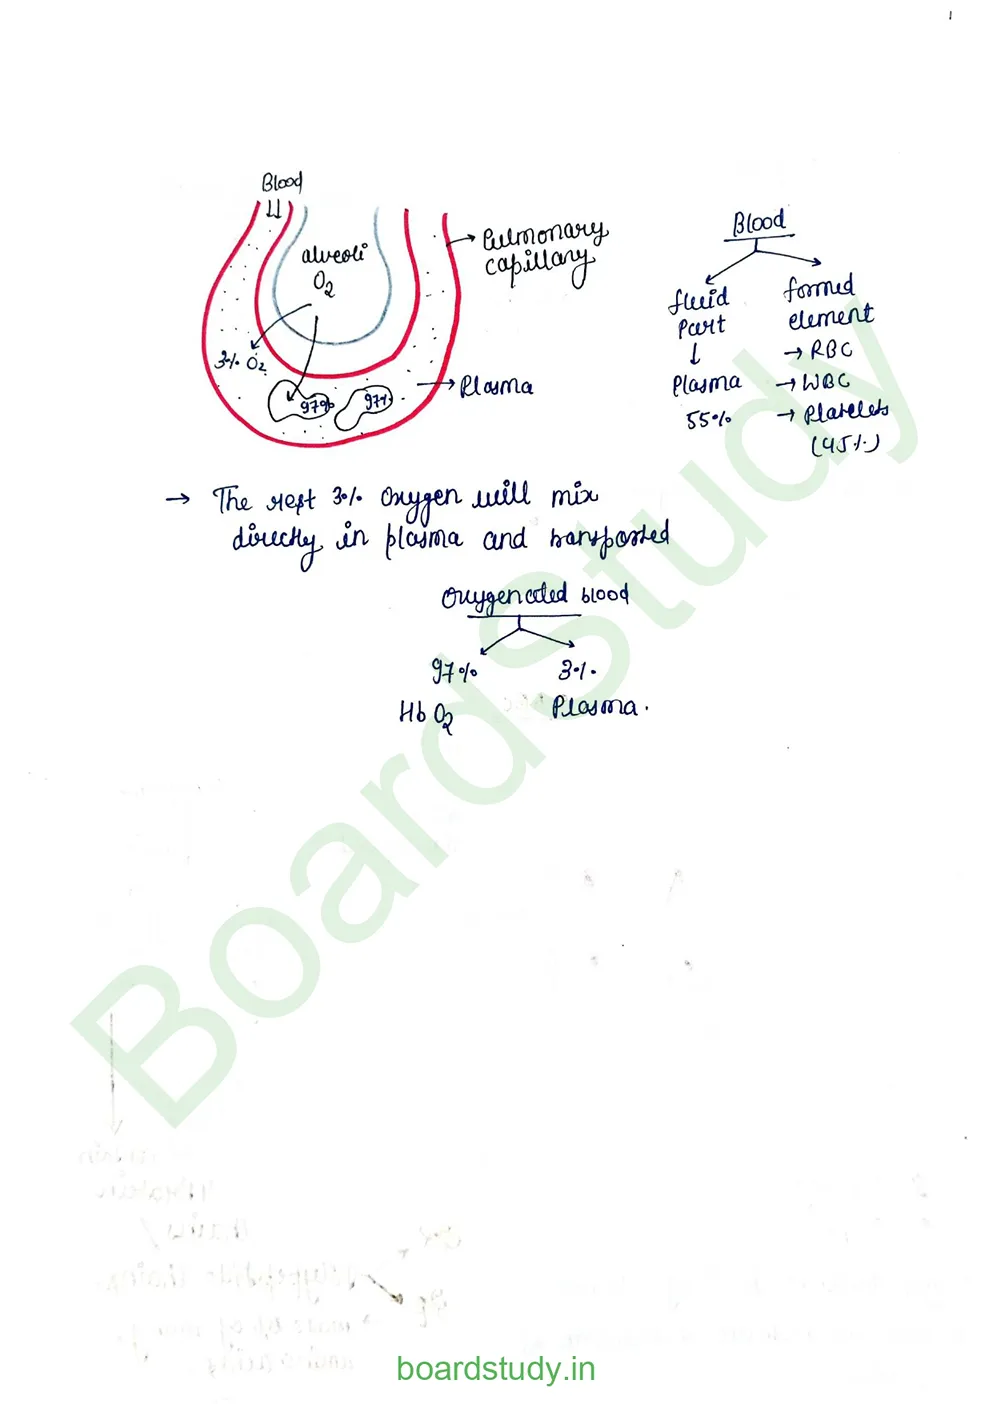 1
Blood
alveoli
O2
Pulmonary
capillary
3% O2
97%
97%
Plasma
Blood
fluid
Part
Plasma
55%
formed
element
→ RBC
→ WBC
→ Platelets
(45%)
→ The rest 3% Oxygen will mix
directly in plasma and transported
Oxygenated blood
97%
3%
HbO2
Plasma.
Boardstudy
boardstudy.in